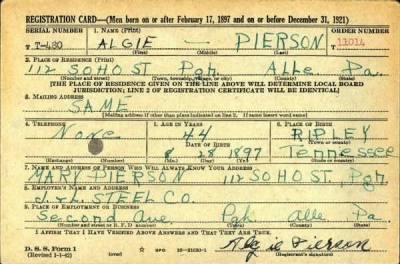 REGISTRATION CARD—(Men born on or after February 17, 1897 and on or before December 31, 1921)
SERIAL NUMBER 1. NAME (Print) ORDER NUMBER
T T-480 ALGIE PIERSON 11014
(First) (Middle) (Last)
2. PLACE OF RESIDENCE (Print)
112 SOHO ST. Pgh. Alle. Pa.
(Number and street) (Town, township, village, or city) (County) (State)
[THE PLACE OF RESIDENCE GIVEN ON THE LINE ABOVE WILL DETERMINE LOCAL BOARD
JURISDICTION; LINE 2 OF REGISTRATION CERTIFICATE WILL BE IDENTICAL]
3. MAILING ADDRESS
SAME
[Mailing address if other than place indicated on line 2. If same insert word same]
4. TELEPHONE 5. AGE IN YEARS 6. PLACE OF BIRTH
None 44 RIPLEY
DATE OF BIRTH
8 28 1897 Tennessee
(Exchange) (Number) (Mo.) (Day) (Yr.) (State or country)
7. NAME AND ADDRESS OF PERSON WHO WILL ALWAYS KNOW YOUR ADDRESS
MARY PIERSON 112 SOHO ST. Pgh.
8. EMPLOYER'S NAME AND ADDRESS
J. & L. STEEL CO.
9. PLACE OF EMPLOYMENT OR BUSINESS
Second Ave. Pgh Alle Pa.
(Number and street or R. F. D. number) (Town) (County) (State)
I AFFIRM THAT I HAVE VERIFIED ABOVE ANSWERS AND THAT THEY ARE TRUE.
D. S. S. Form 1 GPO 16-21630-1 Algie Pierson
(Revised 1-1-42) (over) (Registrant's signature)